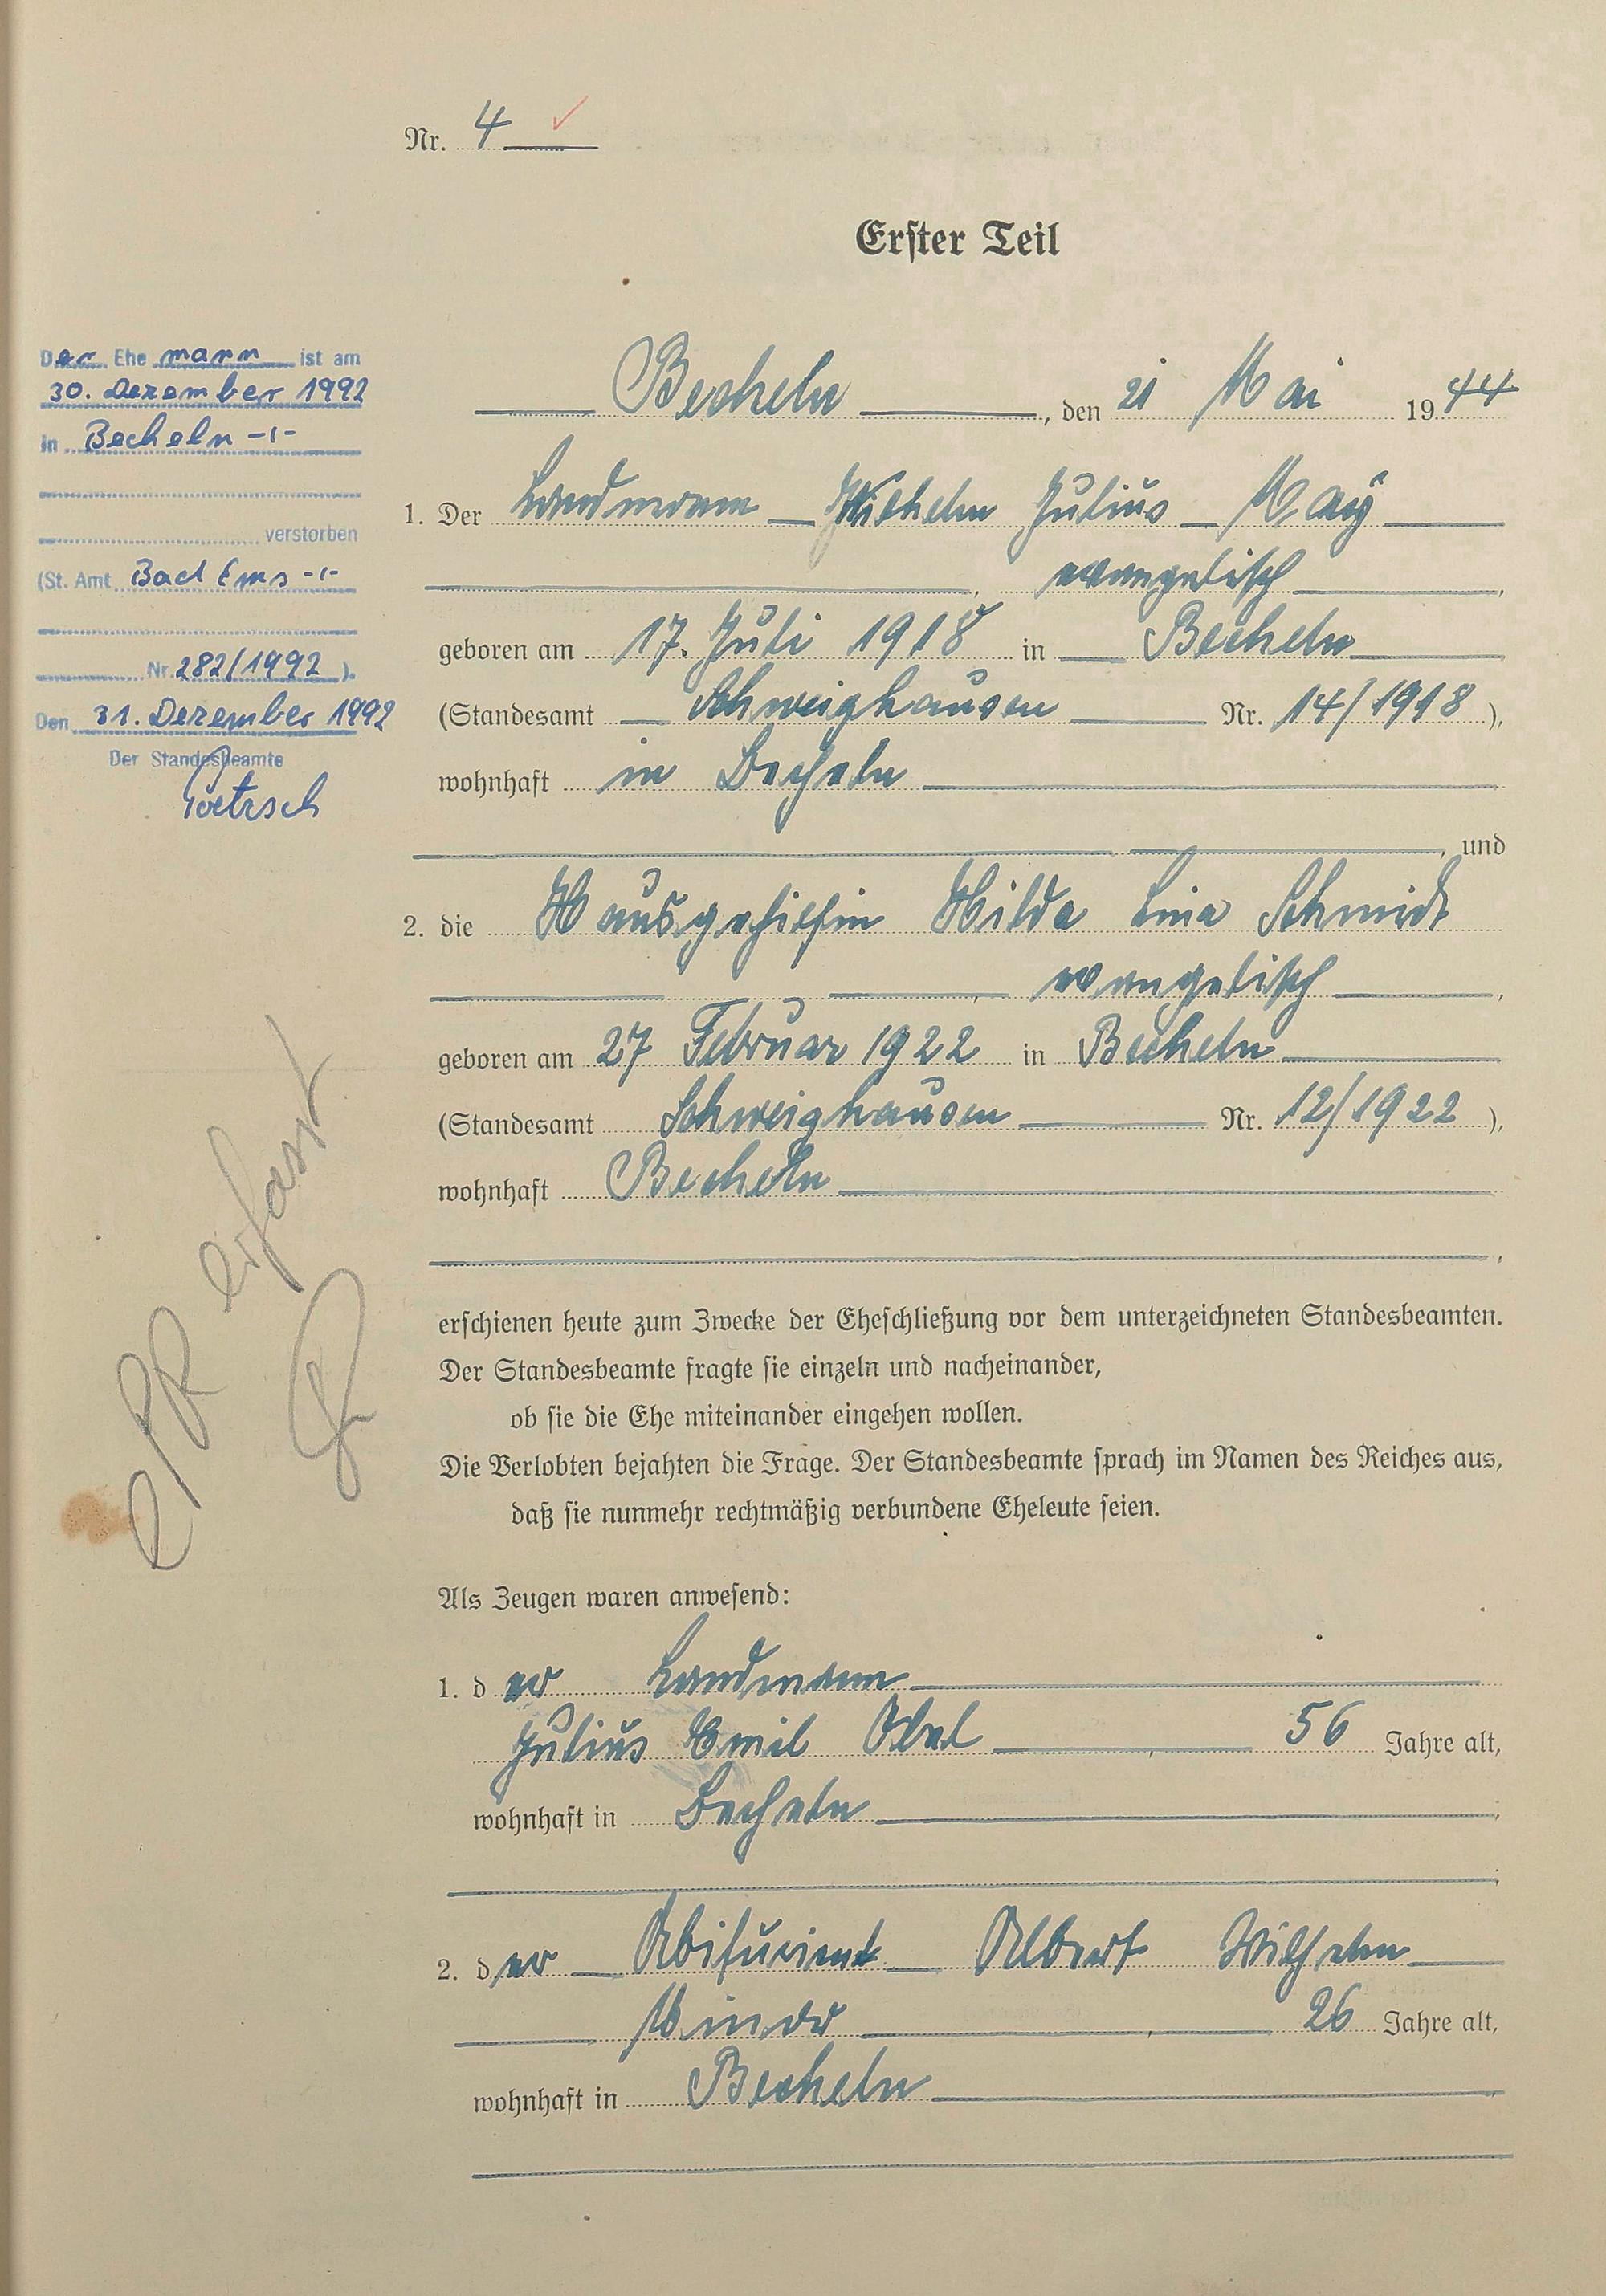 Nr. 4
Erster Teil
Becheln, den 21 Mai 1944
1. Der Landmann Wilhelm Julius May
evangelisch,
geboren am 17. Juli 1918 in Becheln
(Standesamt Schweighausen Nr. 14/1918),
wohnhaft in Becheln
, und
2. die Hausgehilfin Hilda Lina Schmidt
evangelisch,
geboren am 27 Februar 1922 in Becheln
(Standesamt Schweighausen Nr. 12/1922),
wohnhaft Becheln
erschienen heute zum Zwecke der Eheschließung vor dem unterzeichneten Standesbeamten.
Der Standesbeamte fragte sie einzeln und nacheinander,
ob sie die Ehe miteinander eingehen wollen.
Die Verlobten bejahten die Frage. Der Standesbeamte sprach im Namen des Reiches aus,
daß sie nunmehr rechtmäßig verbundene Eheleute seien.
Als Zeugen waren anwesend:
1. der Landmann
Julius Emil 56 Jahre alt,
wohnhaft in Becheln
2. der Abiturient Albert Wilhelm
26 Jahre alt,
wohnhaft in Becheln
Der Ehemann ist am
30. Dezember 1992
in Becheln -/-
verstorben
(St. Amt Bad Ems -/-
Nr. 282/1992).
Den 31. Dezember 1992
Der Standesbeamte
erfasst